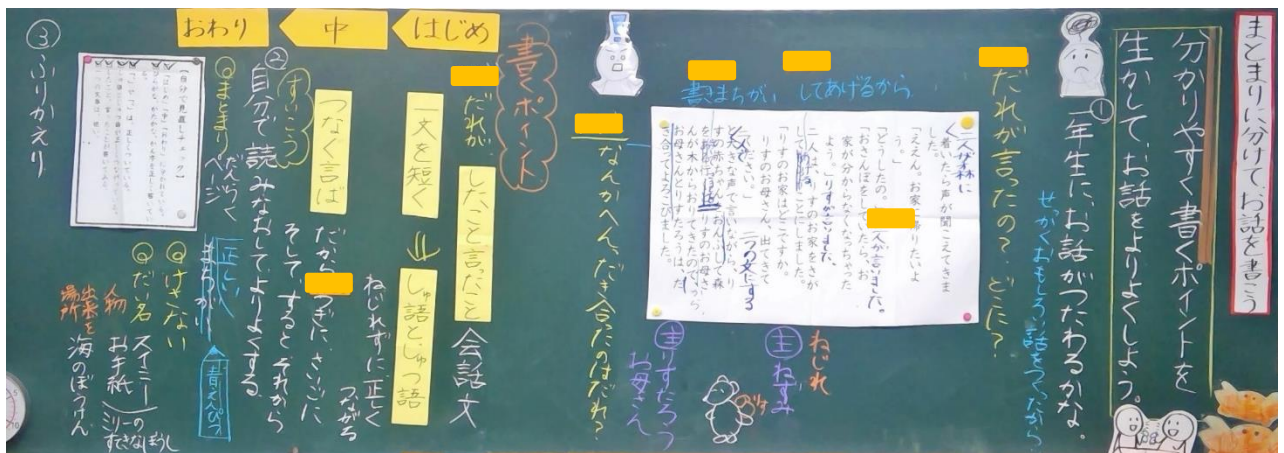 まとまりに分けて、お話を書こう
分かりやすく書くポイントを
生かして、お話をよりよくしよう。
①
一年生に、お話がつたわるかな。
せっかくおもしろい話をつくったから
だれが言ったの？ どこに？
してあげるから
書きまちがい
二人が森に
く着いたら声が聞こえてきま
した。
「ええん。お家に帰りたいよ
う。」
「どうしたの。
二人が言いました。
「おさんぽをしていたら、お
家が分からなくなっちゃった
よう。」りすが言いました。
二人は、りすのお家をさが
して
ことにしました。
「りすのお家はどこですか。
りすのお母さん、出てきて
ください。」
二つの文にする
と大きな声で言いながら、り
すの赤ちゃんをおんぶして森
りすのお母さ
んが木からおりてきたので、から、
お母さんとりすたろうは、だ
き合ってよろこびました。
ねじれ
主 ねずみ
主 りすたろう
お母さん
なんかへん、だき合ったのはだれ？
書くポイント
はじめ
中
おわり
だれが
したこと言ったこと
会話文
一文を短く
しゅ語とじゅつ語
ねじれずに正しく
つながる
つなぐ言ば
だから
つぎに、さいごに
そして、すると、それから
すいこう
②
自分で読みなおして、よりよくする
◎まとまり
だんらく
ぺージ
正しい
まちがい
青えんぴつ
◎けさない
◎だい名
スイミー
お手紙
ミリーの
すてきなぼうし
海のぼうけん
人物
出来ごと
場所
【自分で見直しチェック】
③ふりかえり